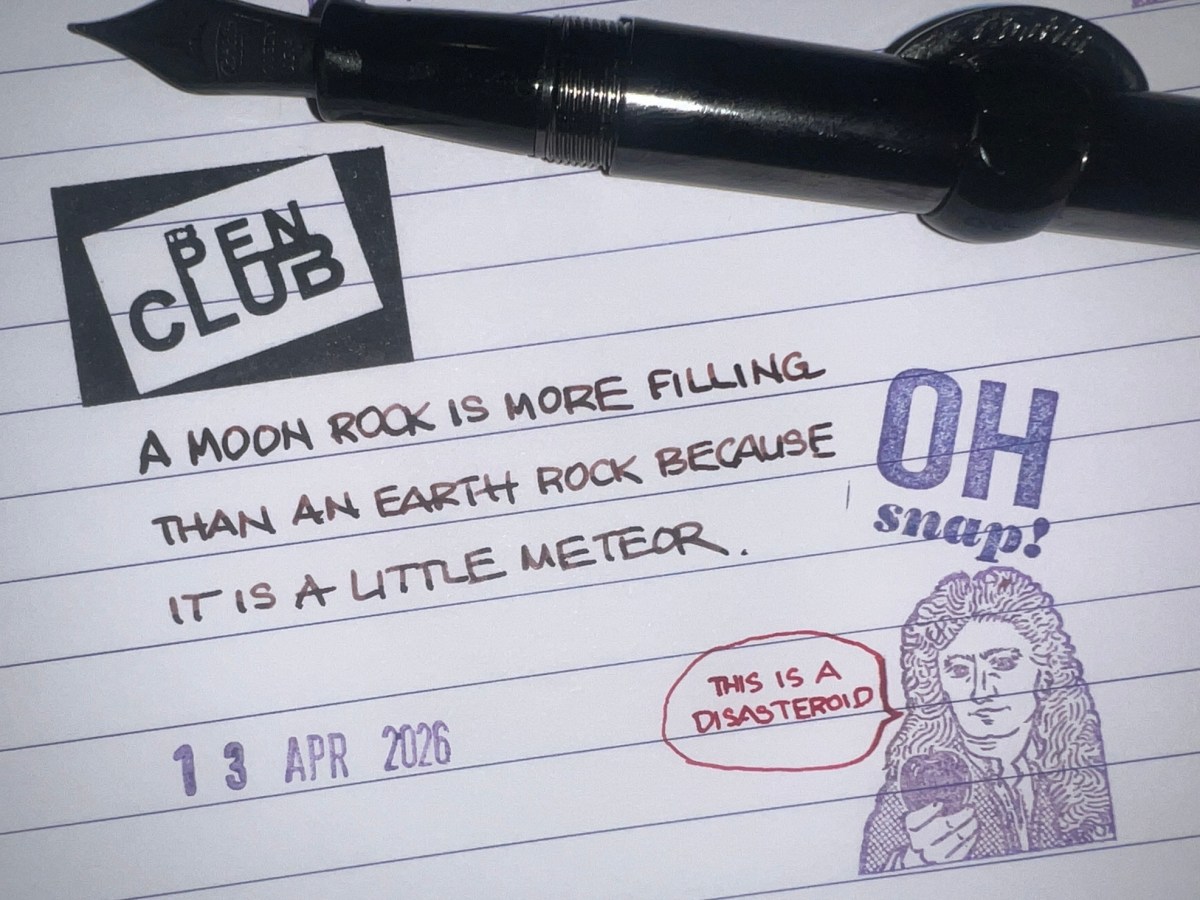 PEN
CLUB
A MOON ROCK IS MORE FILLING
THAN AN EARTH ROCK BECAUSE
IT IS A LITTLE METEOR.
OH
snap!
THIS IS A
DISASTEROID
13 APR 2026